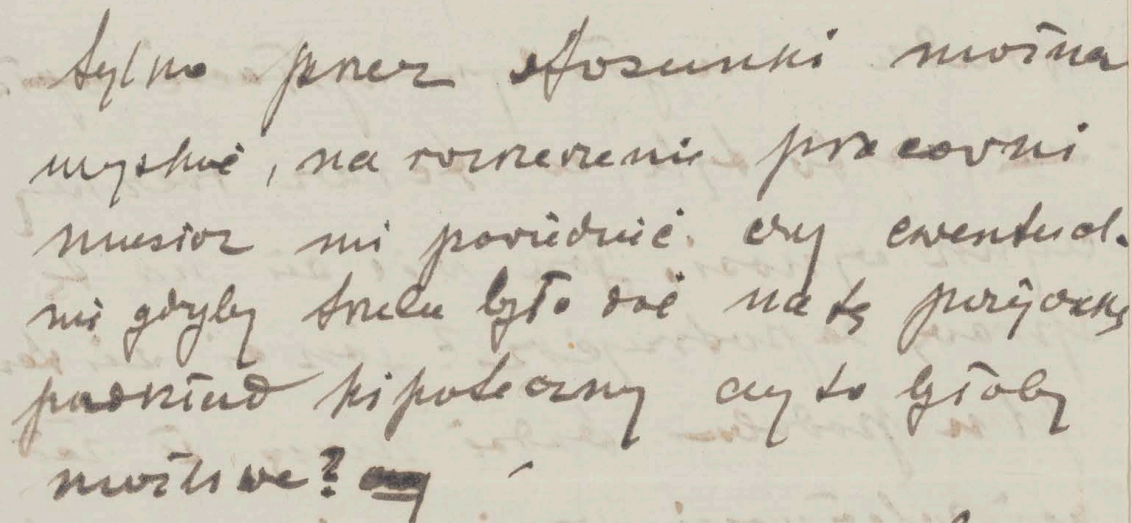 tylko przez stosunki można
uzyskać, na rozszerzenie pracowni
musisz mi powiedzieć. czy ewentual-
nie gdyby trzeba było dać na tę pożyczkę
podkład hipoteczny czy to byłoby
możliwe?